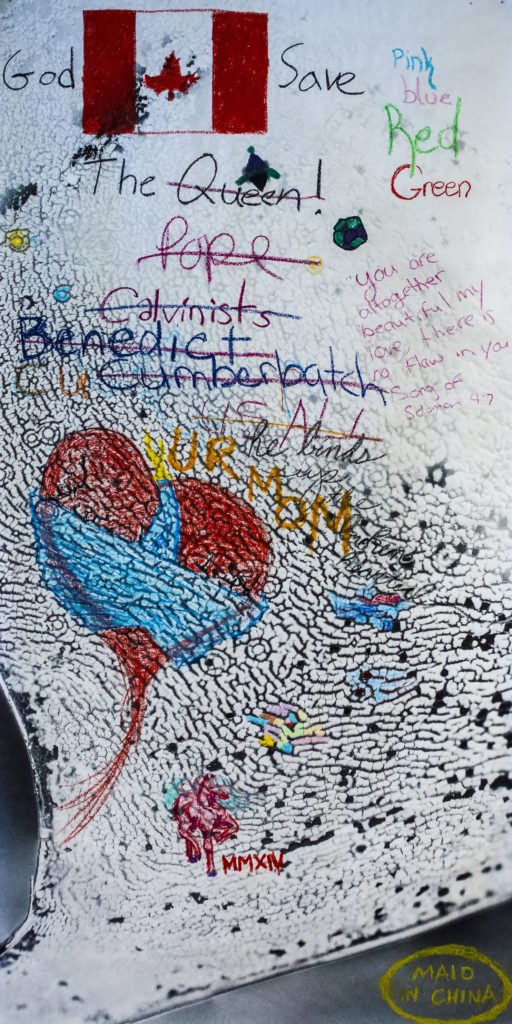 God Save
The Queen!
Pope
Calvinists
Benedict
Cumberbatch
UR
MOM
he binds
up
Pink
blue
Red
Green
you are
altogether
beautiful my
love, there is
no flaw in you
Song of
Solomon 4:7
MMXIV
MAID
IN CHINA